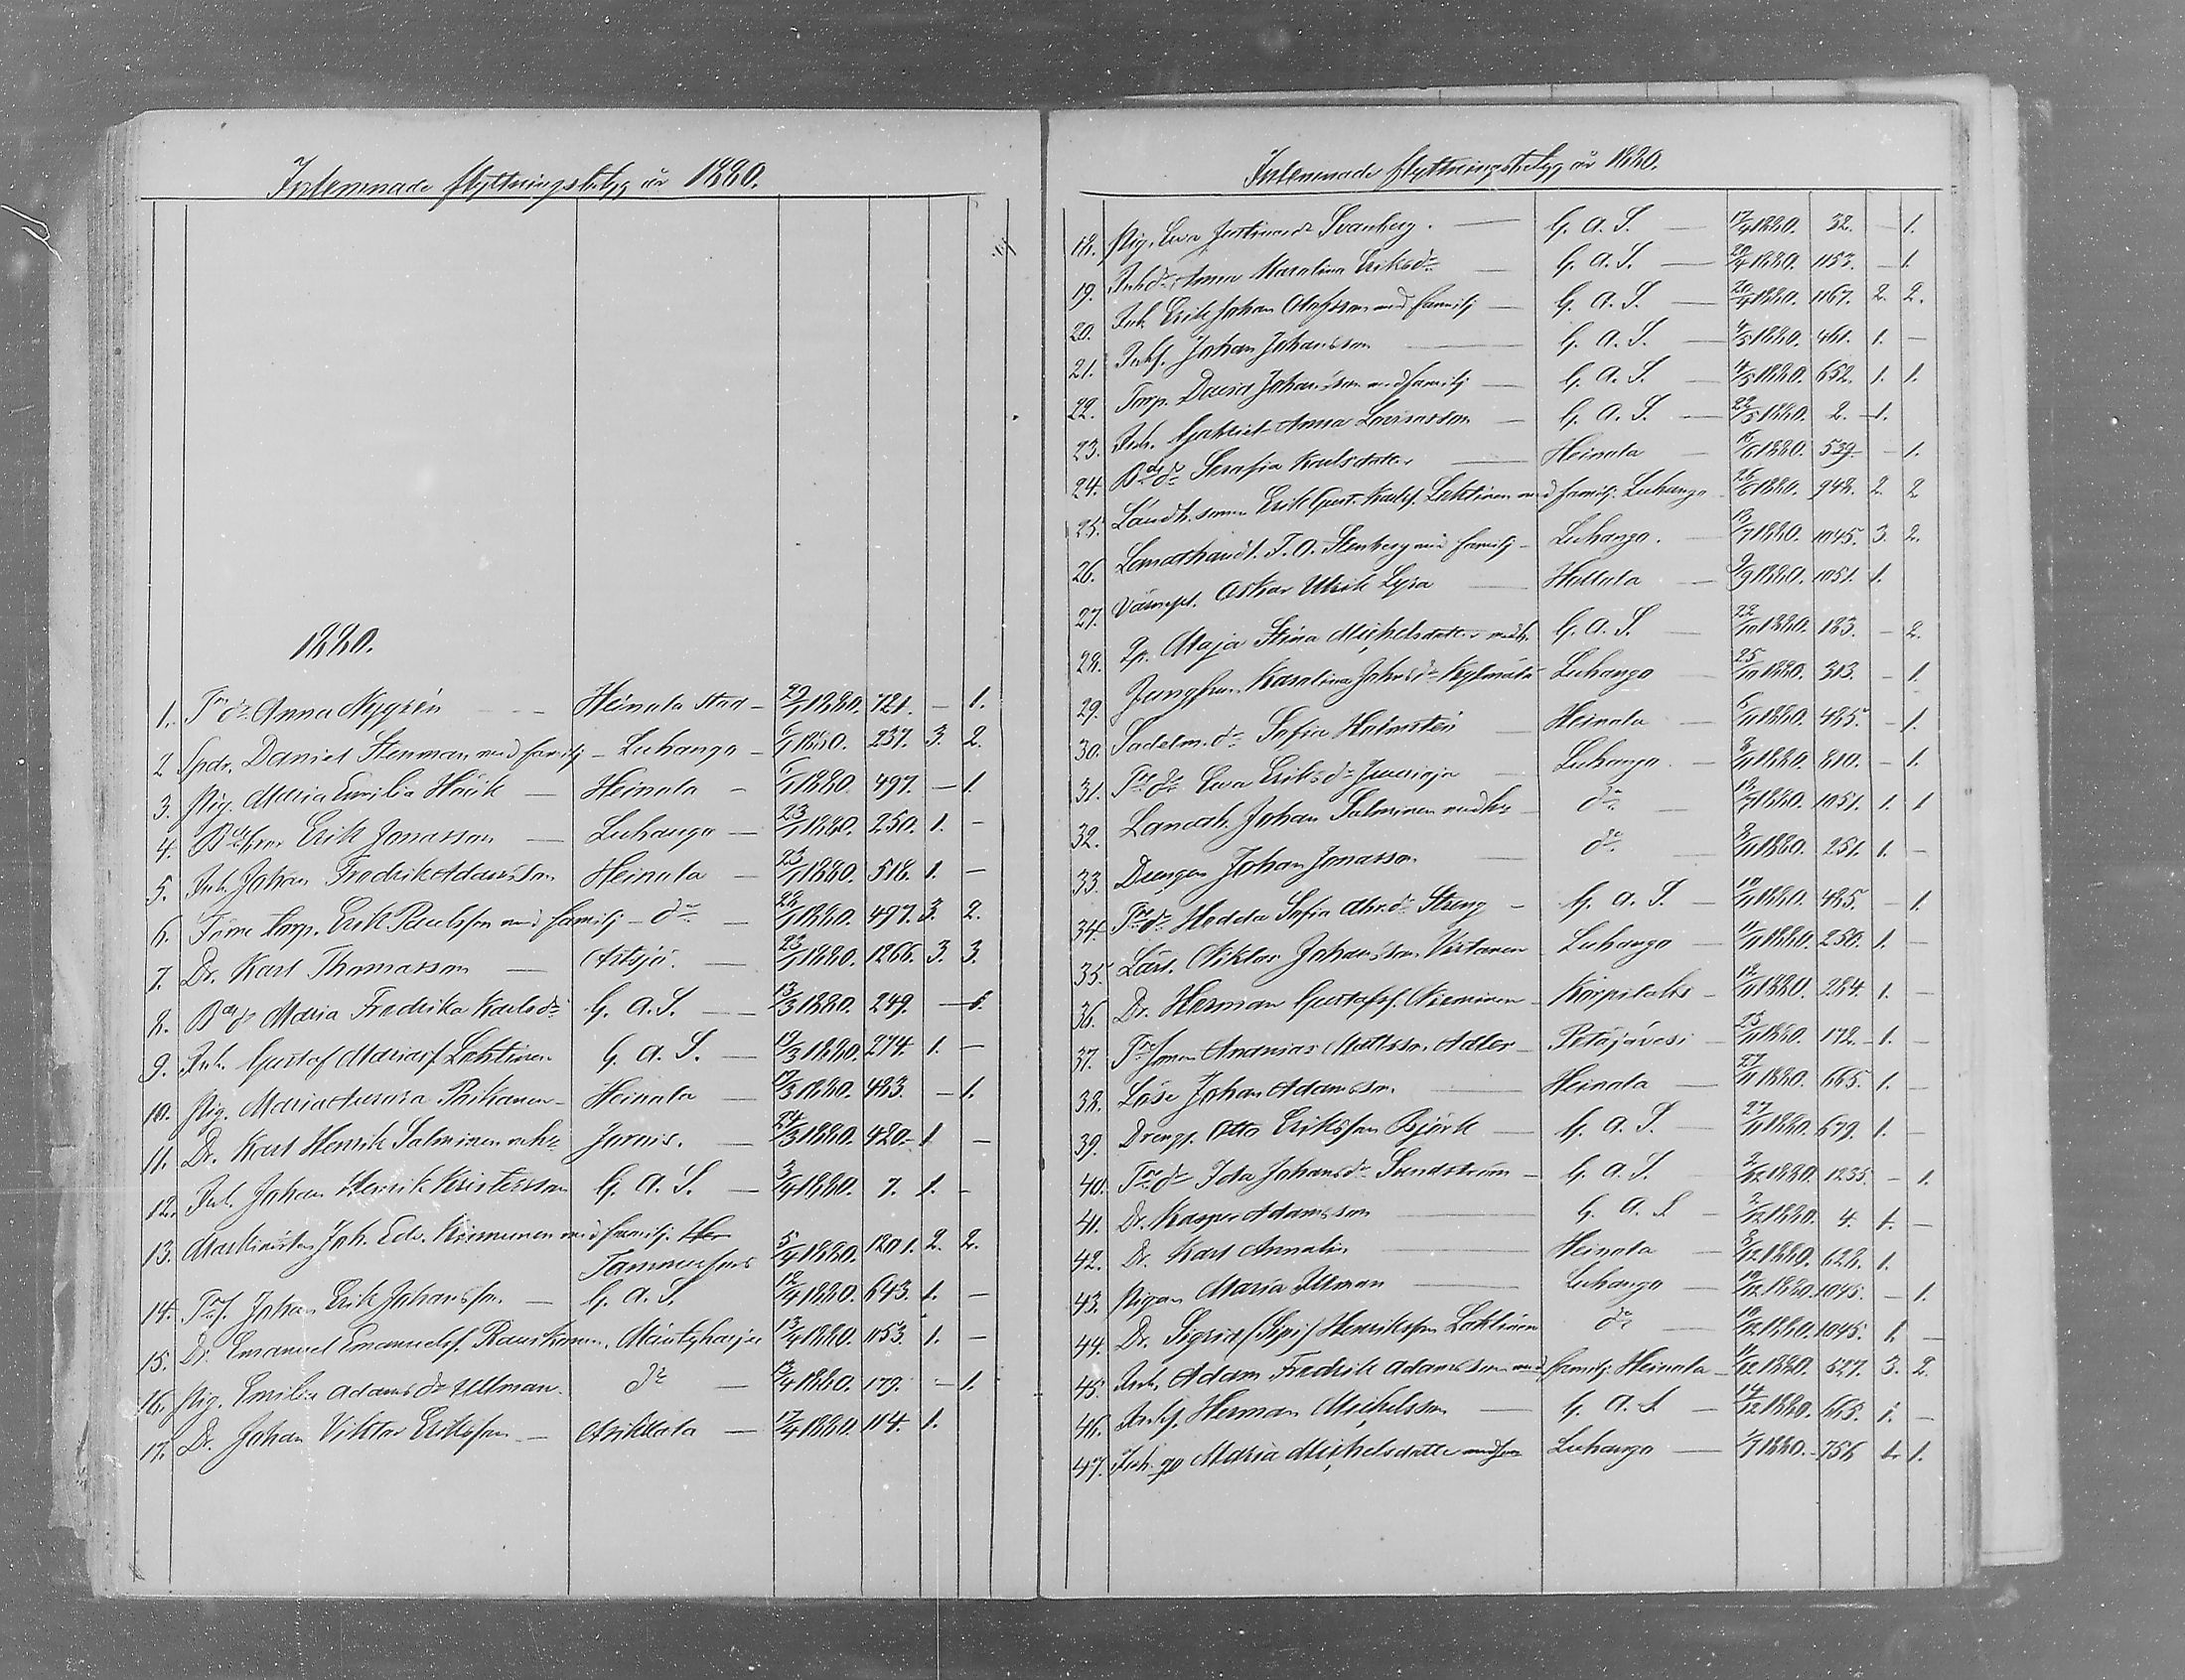 Inlemnade flyttningsbetyg år 1880.
1880.
1. Trdr Anna Nygrén — Heinola Stad — 29/1 1880. 721. — 1.
2 Spdr. Daniel Stenman med familj — Luhango — 6/1 1880. 237. 3. 2.
3. Pig. Maria Emilia Höök — Heinola — 6/1 1880. 497. — 1.
4. Bdesson Erik Jonasson — Luhango — 23/1 1880. 250. 1. —
5. Inh. Johan Fredrik Adamsson Heinola — 23/1 1880. 518. 1. —
6. Förre torp. Erik Paulsson med familj — do — 28/1 1880. 497. 3. 2.
7. Dr. Karl Thomasson — Artsjö. — 23/1 1880. 1266. 3. 3.
8. Bdedr Maria Fredrika Karlsdr G. A. S. — 13/3 1880. 249. — 1.
9. Inh. Gustaf Mariasf. Lehtinen G. A. S. — 17/3 1880. 274. 1. —
10. Pig. Maria Aurora Poikanen — Heinola — 17/3 1880. 483. — 1.
11. Dr. Karl Henrik Salminen Jorois. — 24/3 1880. 420. 1. —
12. Inh. Johan Henrik Kristersson G. A. S. — 3/4 1880. 7. 1. —
13. Maskinisten Joh. Edv. Kinnunen med familj.
Tammerfors 5/4 1880. 1201. 2. 2.
14. Trpf. Johan Erik Johansson. — G. A. S. 12/4 1880. 643. 1. —
15. Dr. Emanuel Emanuelsf. Rautianen, Mäntyharju 13/4 1880. 1153. 1. —
16. Pig. Emilia Adamsdr Ullman. do — 17/4 1880. 179. — 1.
17. Dr. Johan Viktor Eriksson — Asikkala — 17/4 1880. 114. 1.
Inlemnade flyttningsbetyg år 1880.
18. Pig. Eva Justinadr Svanberg. — G. A. S. — 17/4 1880. 32. — 1.
19. Inhdr Anna Karolina Eriksdr — G. A. S. — 20/4 1880. 1153. — 1.
20. Inh. Erik Johan Olofsson med familj — G. A. S. — 20/4 1880. 1167. 2. 2.
21. Inhf. Johan Johansson — G. A. S. — 4/5 1880. 461. 1. —
22. Torp. David Johansson med familj — G. A. S. — 4/5 1880. 652. 1. 1.
23. Inh. Gabriel Anna Lovisasson — G. A. S. — 22/5 1880. 2. 1.
24. Bdedr Serafia Karlsdotter — Heinola — 15/6 1880. 539. — 1.
25. Landh. sonen Erik Gust. Karlsf. Lehtinen med familj. Luhango 26/6 1880. 948. 2. 2
26. Lanthandl. T. A. Stenberg med familj — Luhango. — 13/7 1880. 1045. 3. 2.
27. Värnpl. Oskar Ulrik Lyra — Hollola — 9/9 1880. 1051. 1.
28. Qp. Maja Stina Michelsdotter G. A. S. — 22/10 1880. 183. — 2.
29. Jungfrun Karolina Johansdr Kylmälä Luhango — 25/10 1880. 313. — 1.
30. Sadelm.dr Sofia Holmstén — Heinola — 6/11 1880. 485. — 1.
31. Trdr Eva Eriksdr — Luhango. — 8/11 1880. 810. — 1.
32. Landh. Johan Salminen — do — 1880. 1051. 1. 1
33. Drengen Johan Jonasson — do — 8/11 1880. 251. 1. —
34. Trdr Hedda Sofia Abr.dr Streng — G. A. S. — 10/11 1880. 485. — 1.
35. Lärl. Viktor Johansson Virtanen Luhango — 11/11 1880. 250. 1. —
36. Dr. Herman Gustafsf. Nieminen — Korpilaks — 12/11 1880. 284. 1. —
37. Trpsonen Ananias Mattsson Adler — Petäjävesi — 23/11 1880. 172. 1. —
38. Lösе Johan Adamsson — Heinola — 27/11 1880. 665. 1. —
39. Drengs. Otto Eriksson Björk — G. A. S. — 27/11 1880. 679. 1. —
40. Trdr Ida Johansdr Sundström — G. A. S. — 2/12 1880. 1235. — 1.
41. Dr. Kasper Adamsson — G. A. S — 2/12 1880. 4. 1. —
42. Dr. Karl Annalin — Heinola — 8/12 1880. 628. 1.
43. Pigan Maria Ullman — Luhango — 10/12 1880. 1045. — 1.
44. Dr. Sigrid (Sipi) Henriksson Lehtinen do — 10/12 1880. 1045. 1. —
45. Inh. Adam Fredrik Adamsson med familj. Heinola — 11/12 1880. 527. 3. 2.
46. Inhf. Herman Michelsson — G. A. S — 14/12 1880. 663. 1. —
47. Inh. qp Maria Michelsdotter Luhango — 1/7 1880. 756 1. 1.